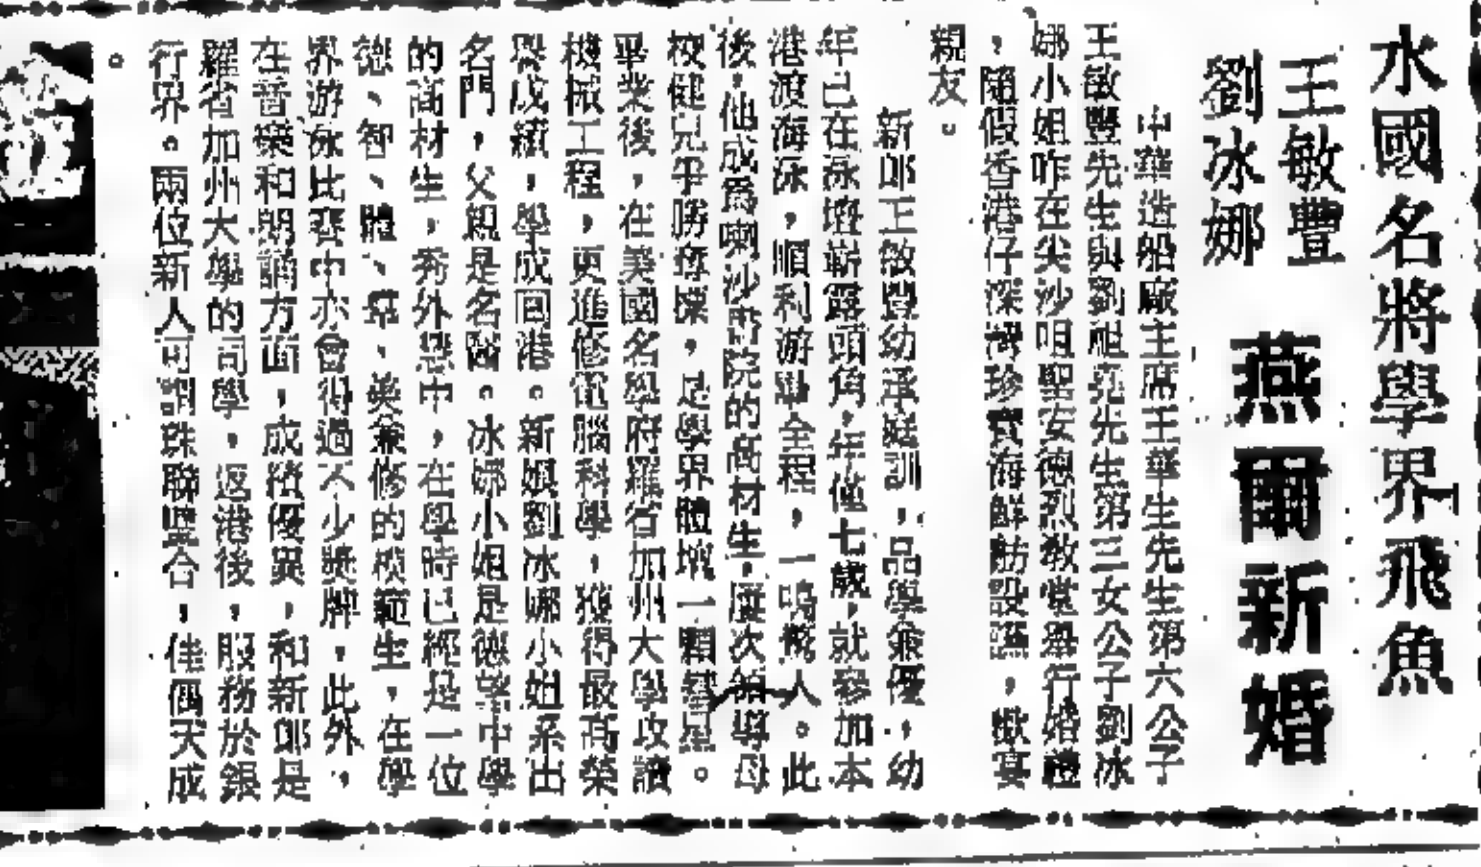 水國名將學界飛魚
王敏豐
劉冰娜
燕爾新婚
中華造船廠主席王華生先生第六公子
王敏豐先生與劉祖堯先生第三女公子劉冰
娜小姐昨在尖沙咀聖安德烈教堂舉行婚禮
，隨假香港仔深灣珍寶海鮮舫設讌，歡宴
親友。
新郎王敏豐幼承庭訓，品學兼優，幼
年已在泳壇嶄露頭角，年僅七歲，就參加本
港渡海泳，順利游畢全程，一鳴驚人。此
後，他成爲喇沙書院的高材生，屢次領導母
校健兒爭勝奪標，是學界體壇一顆彗星。
畢業後，在美國名學府羅省加州大學攻讀
機械工程，更進修電腦科學，獲得最高榮
譽成績，學成回港。新娘劉冰娜小姐系出
名門，父親是名醫。冰娜小姐是德望中學
的高材生，秀外慧中，在學時已經是一位
德、智、體、羣、美兼修的模範生，在學
界游泳比賽中亦會得過不少獎牌，此外，
在音樂和朗誦方面，成績優異，和新郎是
羅省加州大學的同學，返港後，服務於銀
行界。兩位新人可謂珠聯璧合，佳偶天成
。